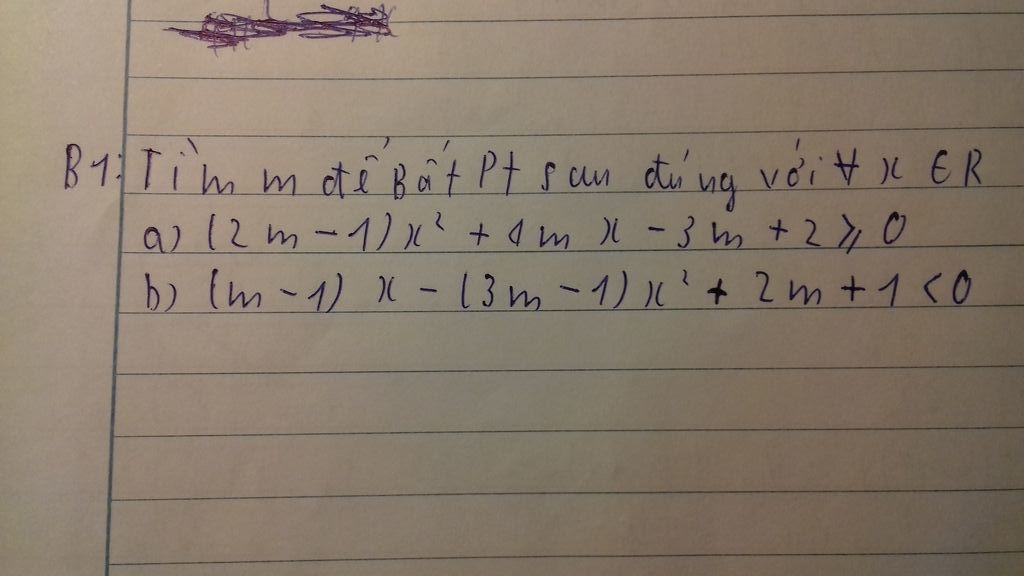 B1: Tìm m để Bất Pt sau đúng với ∀ x ∈ R
a) (2m - 1)x² + 1m x - 3m + 2 ≥ 0
b) (m - 1) x - (3m - 1)x² + 2m + 1 < 0